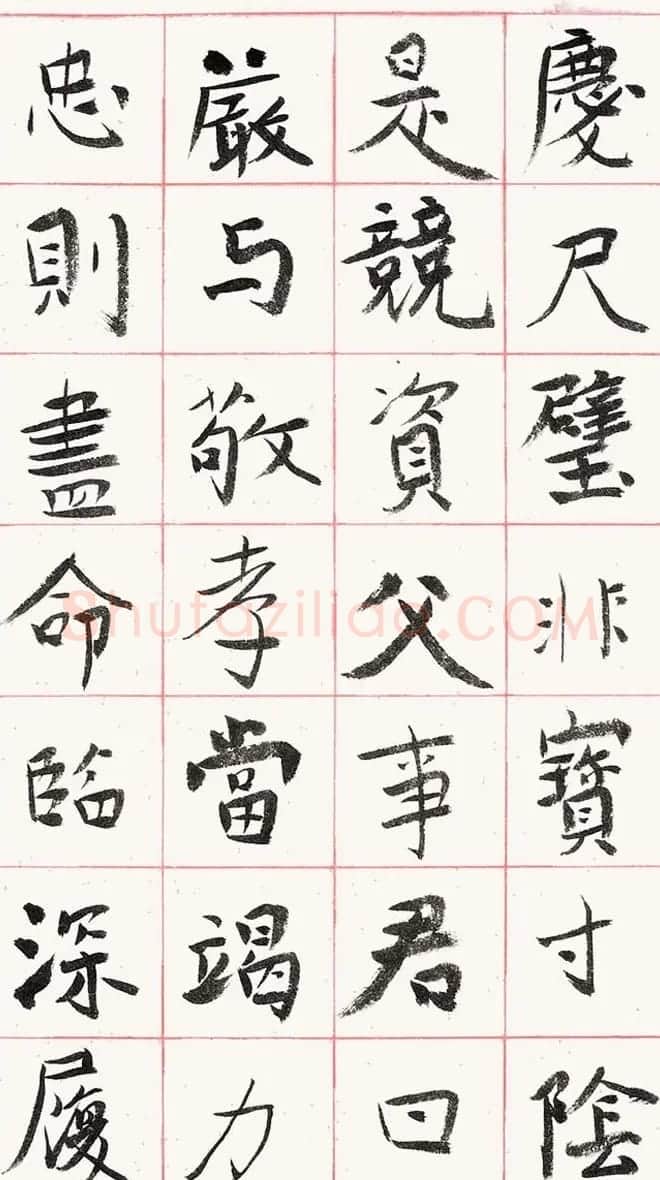 慶尺璧非寶寸陰
是競資父事君曰
嚴与敬孝當竭力
忠則盡命臨深履
Shufaziliao.COM